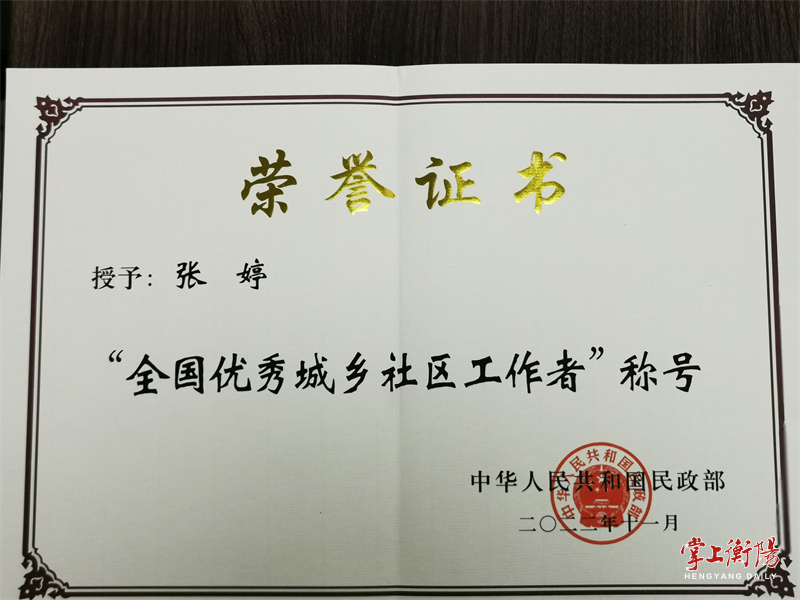 荣誉证书
授予：张 婷
“全国优秀城乡社区工作者”称号
中华人民共和国民政部
二〇二二年十一月
中华人民共和国民政部
掌上衡阳
HENGYANG DAILY